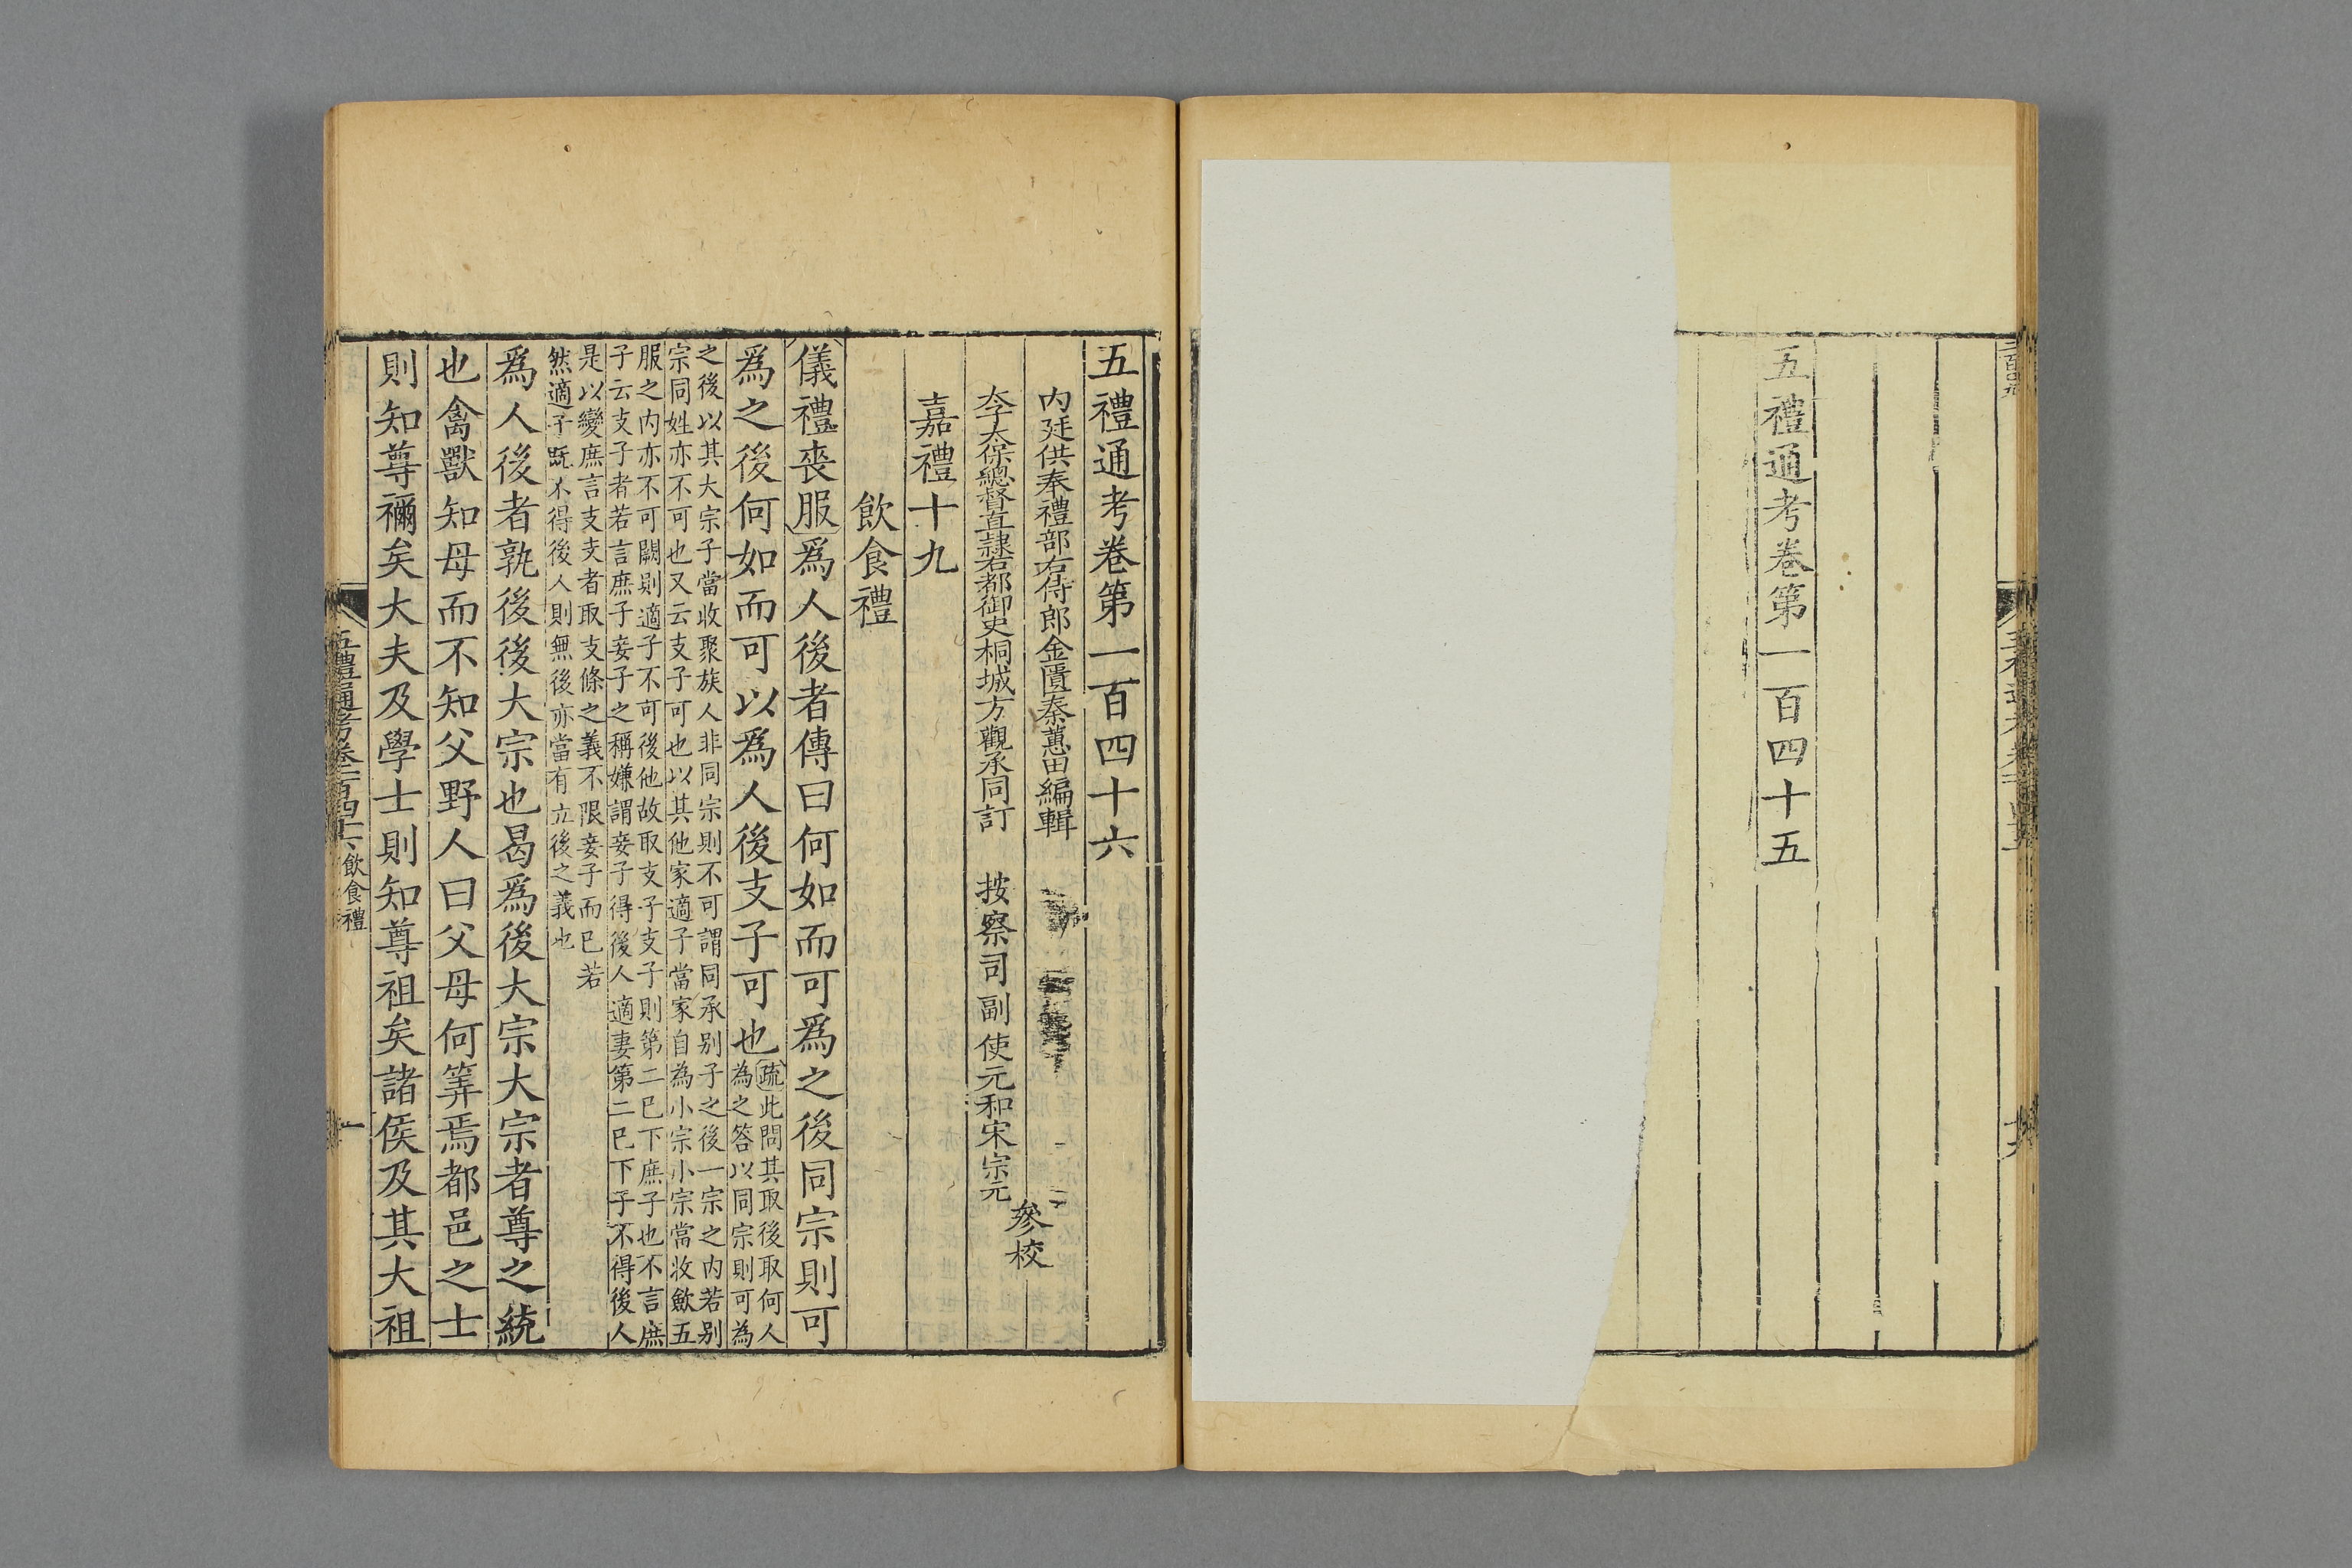 五禮通考卷第一百四十五
五禮通考卷第一百四十六
内廷供奉禮部右侍郎金匱秦蕙田編輯
太子太保總督直隸右都御史桐城方觀承同訂 按察司副使元和宋宗元
參校
嘉禮十九
飲食禮
儀禮喪服為人後者傳曰何如而可為之後同宗則可
為之後何如而可以為人後支子可也
疏此問其取後取何人
為之答以同宗則可為
之後以其大宗子當收聚族人非同宗則不可謂同承别子之後一宗之内若别
宗同姓亦不可也又云支子可也以其他家適子當家自為小宗小宗當收歛五
服之内亦不可闕則適子不可後他故取支子支子則第二已下庶子也不言庶
子云支子者若言庶子妾子之稱嫌謂妾子得後人適妻第二已下子不得後人
是以變庶言支支者取支條之義不限妾子而已若
然適子既不得後人則無後亦當有立後之義也
為人後者孰後後大宗也曷為後大宗大宗者尊之統
也禽獸知母而不知父野人曰父母何筭焉都邑之士
則知尊禰矣大夫及學士則知尊祖矣諸侯及其大祖
五禮通考卷一百四十六 飲食禮 一